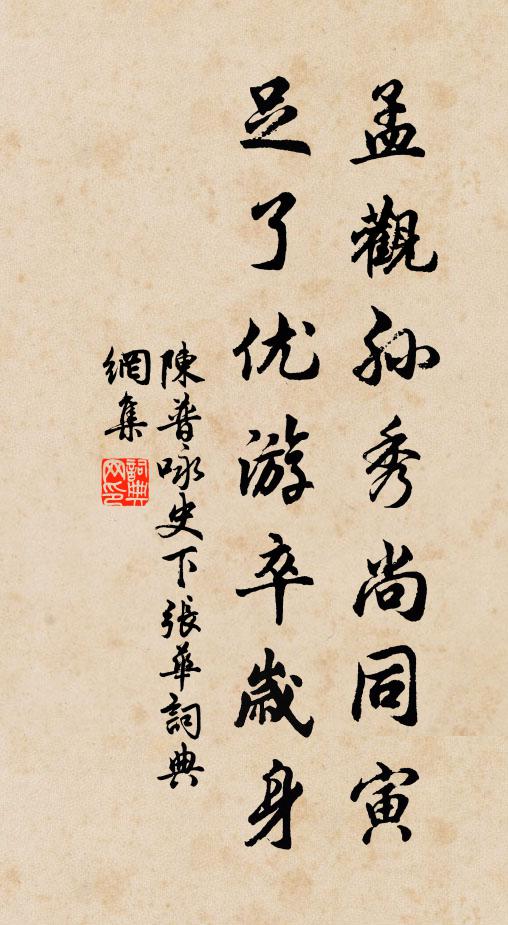 孟觀孙秀尚同寅
足了优游卒歲身
陳普咏史下張華詞典
網集
詞典
网印